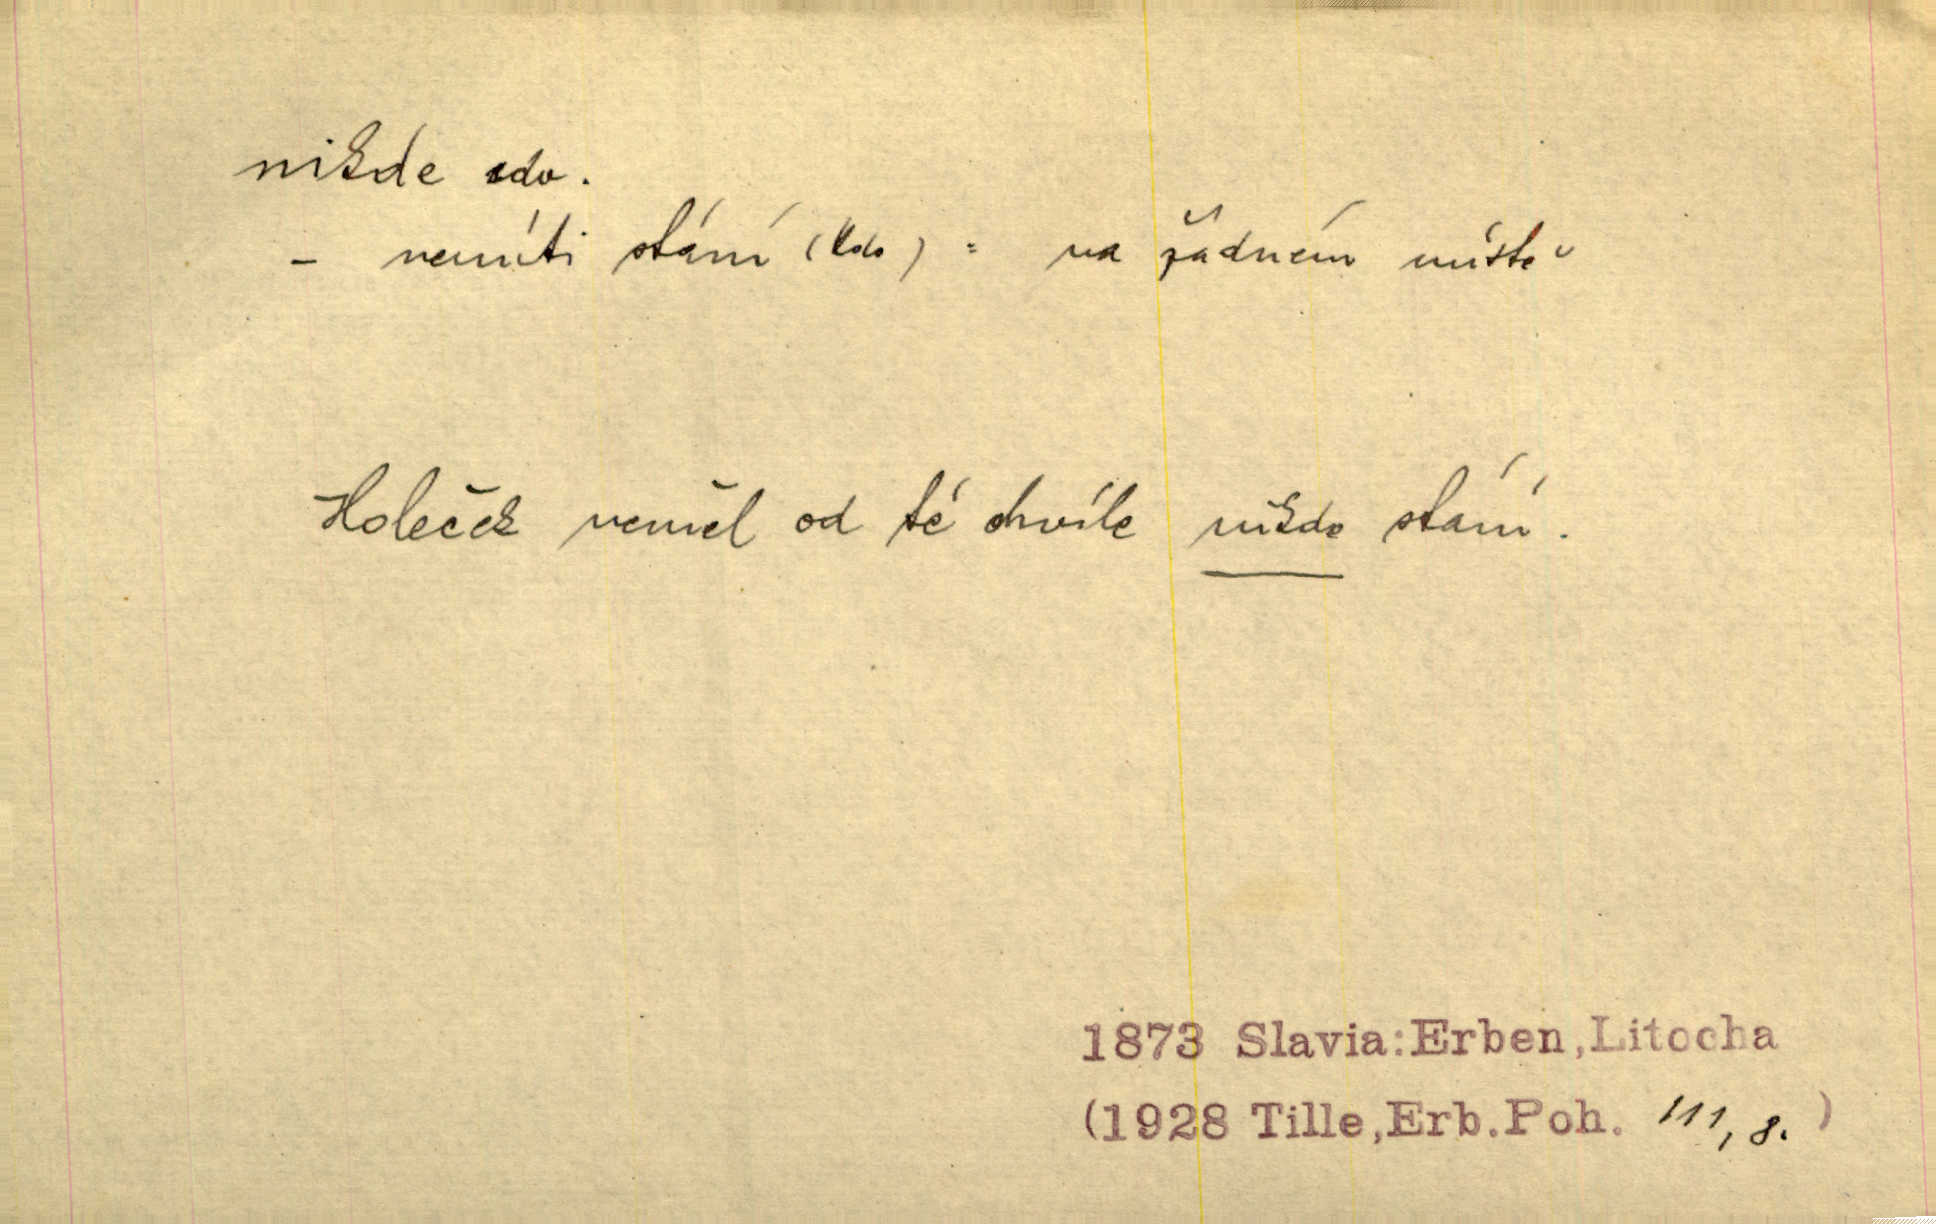 nikde adv.
– nemíti stání (kdo) = na žádném místě
Holeček neměl od té chvíle nikde stání.
1873 Slavia:Erben,Litocha
(1928 Tille,Erb.Poh. 111, 8. )